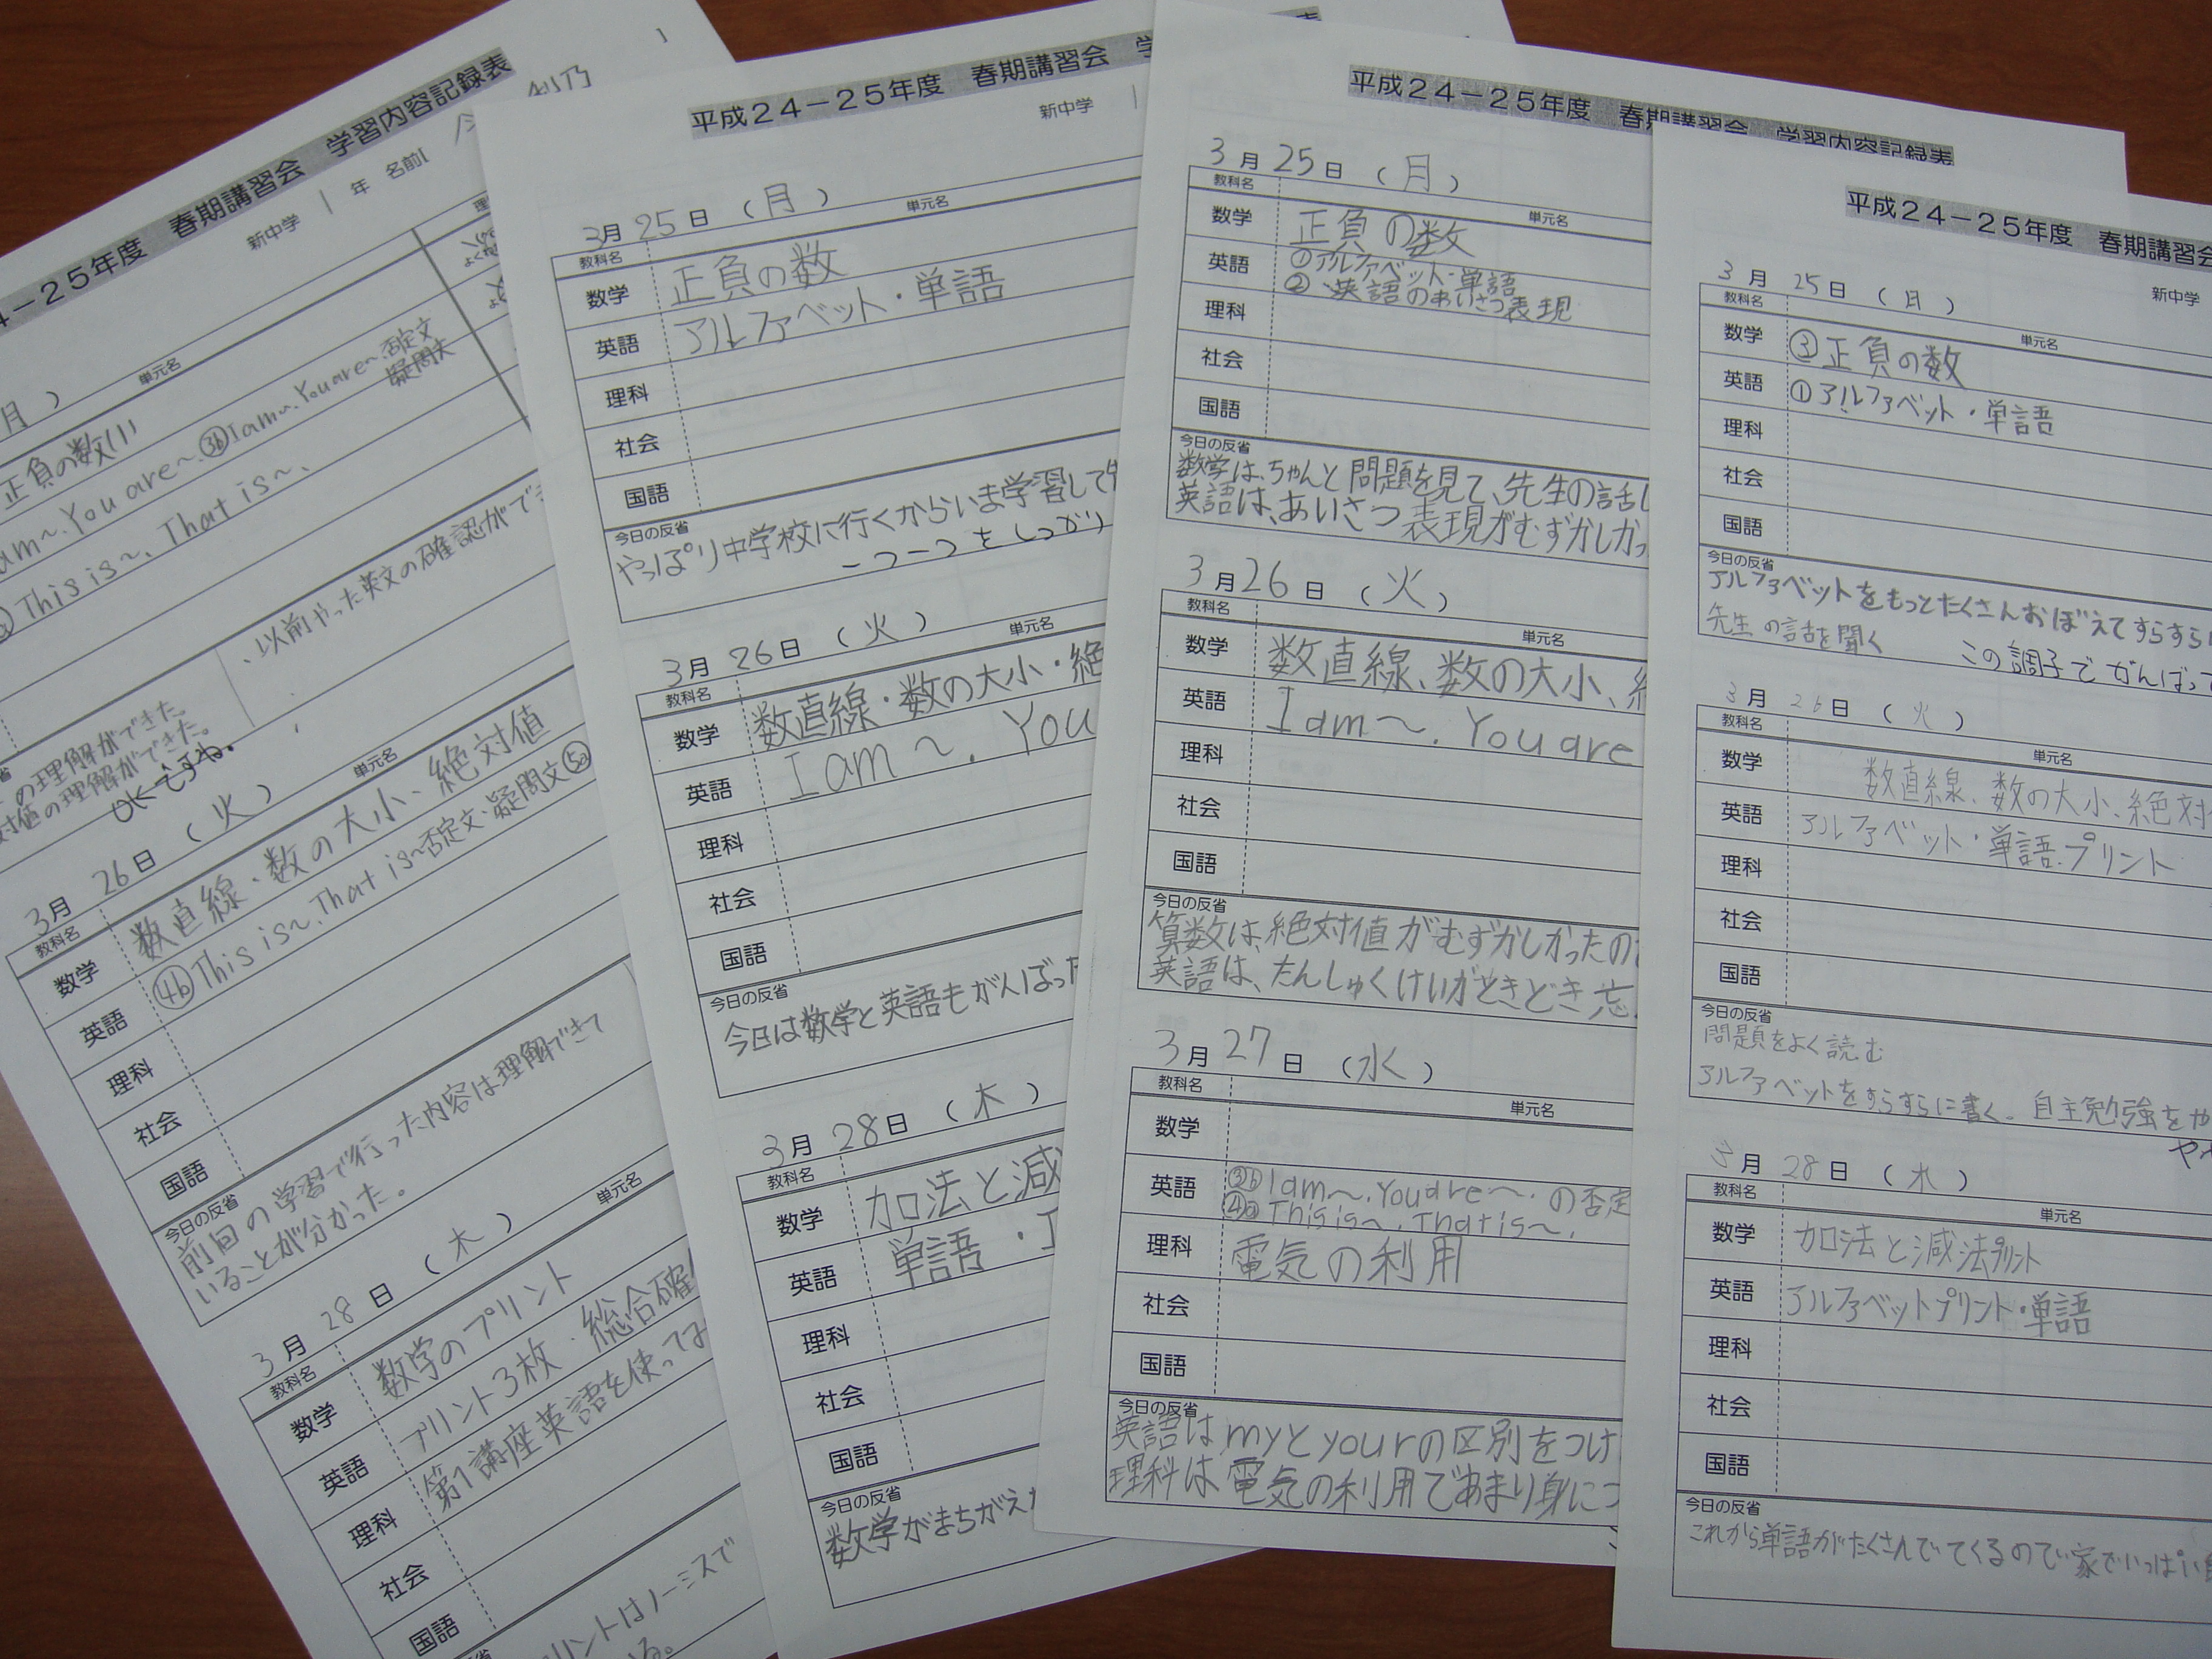 －25年度 春期講習会 学習内容記録表
新中学 1 年 名前[
単元名
月 )
正負の数(1)
am~. You are~. ③b I am~. You are~. 否定文
疑問文
This is~. That is~.
、以前やった英文の確認ができ
の理解ができた。
対値の理解ができた。
OKですね。
3月 26日 ( 火 )
教科名 単元名
数学 数直線・数の大小・絶対値
英語 ④b This is~. That is~否定文・疑問文 ⑤a
理科
社会
国語
今日の反省
前回の学習で行った内容は理解できて
いることが分かった。
3月 28日 ( 木 )
教科名 単元名
数学 数学のプリント
英語 プリント3枚・総合確
理科 第1講座英語を使って
社会
国語
リントはノーミスで
る。
平成24－25年度 春期講習会 学
新中学 1
3月 25日 ( 月 )
教科名 単元名
数学 正負の数
英語 アルファベット・単語
理科
社会
国語
今日の反省
やっぱり中学校に行くからいま学習して
一つ一つをしっかり
3月 26日 ( 火 )
教科名 単元名
数学 数直線・数の大小・絶
英語 I am ~. You
理科
社会
国語
今日の反省
今日は数学と英語もがんばった
3月 28日 ( 木 )
教科名
数学 加法と減
英語 単語・I
理科
社会
国語
今日の反省
数学がまちがえ
平成24－25年度 春期講習会 学習内容記録表
3月 25日 ( 月 )
教科名 単元名
数学 正負の数
英語 ①アルファベット・単語
②英語のあいさつ表現
理科
社会
国語
今日の反省
数学は、ちゃんと問題を見て、先生の話し
英語は、あいさつ表現がむずかしかっ
3月 26日 ( 火 )
教科名 単元名
数学 数直線、数の大小、
英語 I am ~. You are
理科
社会
国語
今日の反省
算数は、絶対値がむずかしかったの
英語は、たんしゅくけいがときどき忘
3月 27日 ( 水 )
教科名 単元名
数学
英語 ③b I am~. You are~. の否定
④a This is~. That is~.
理科 電気の利用
社会
国語
今日の反省
英語は myとyourの区別をつけ
理科は電気の利用であまり身につ
平成24－25年度 春期講習会
新中学
3月 25日 ( 月 )
教科名 単元名
数学 ③正負の数
英語 ①アルファベット・単語
理科
社会
国語
今日の反省
アルファベットをもっとたくさんおぼえてすらすら
先生の話を聞く
この調子でがんばって
3月 26日 ( 火 )
教科名 単元名
数学 数直線、数の大小、絶対
英語 アルファベット・単語.プリント
理科
社会
国語
今日の反省
問題をよく読む
アルファベットをすらすらに書く。自主勉強をや
3月 28日 ( 木 )
教科名 単元名
数学 加法と減法プリント
英語 アルファベットプリント・単語
理科
社会
国語
今日の反省
これから単語がたくさんでてくるので家でいっぱい